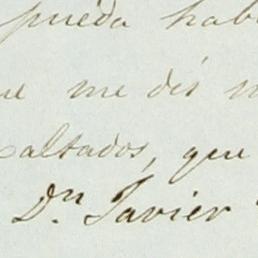 pueda hab
ue me dió
xaltados, que
Dn. Javier